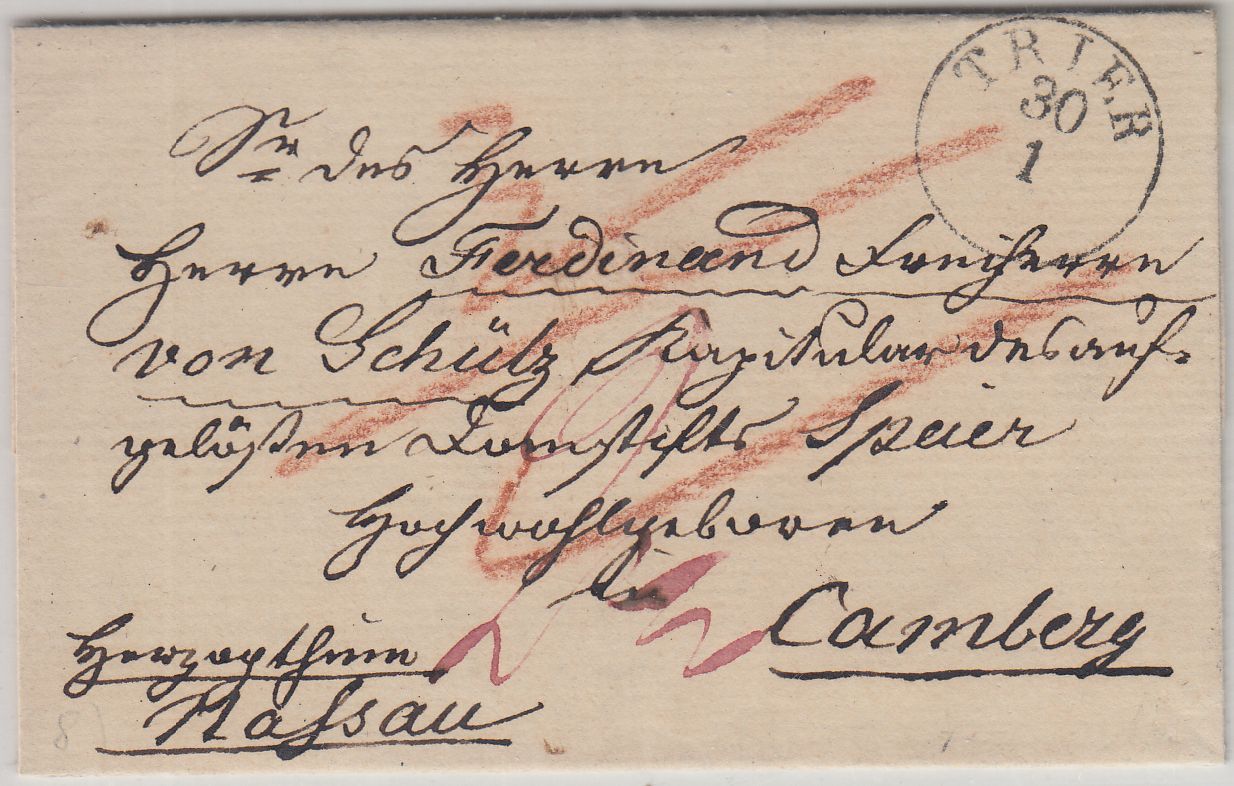 TRIER
30
1
Sr des Herrn
Herrn Ferdinand Freiherrn
von Schütz Kapitular des auf-
gelößten Domstifts Speier
Hochwohlgeboren
in
Camberg
Herzogthum
Nassau